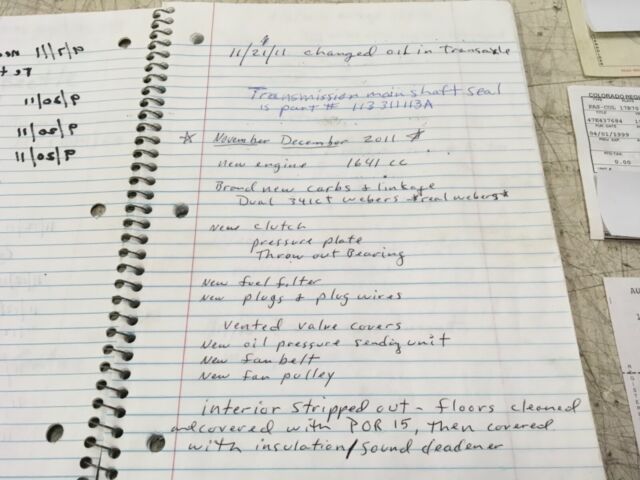 11/21/11 changed oil in Transaxle
Transmission main shaft seal
is part # 113 311 113A
* November December 2011 *
new engine 1641 cc
Brand new carbs & linkage
Dual 34ict webers *real webers*
New clutch
pressure plate
Throw out Bearing
New fuel filter
New plugs & plug wires
Vented valve covers
New oil pressure sending unit
New fan belt
New fan pulley
interior stripped out - floors cleaned
and covered with POR 15, then covered
with insulation/sound deadener
9/7/11
9/20/11
9/20/11
9/20/11
COLORADO REGI
PAS-COL 17870
47E437684
04/01/1999
0.00
AU